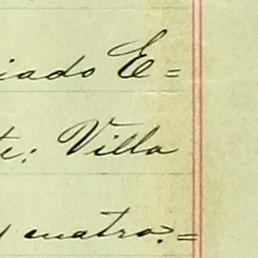 iado E=
te: Villa
y cuatro.=